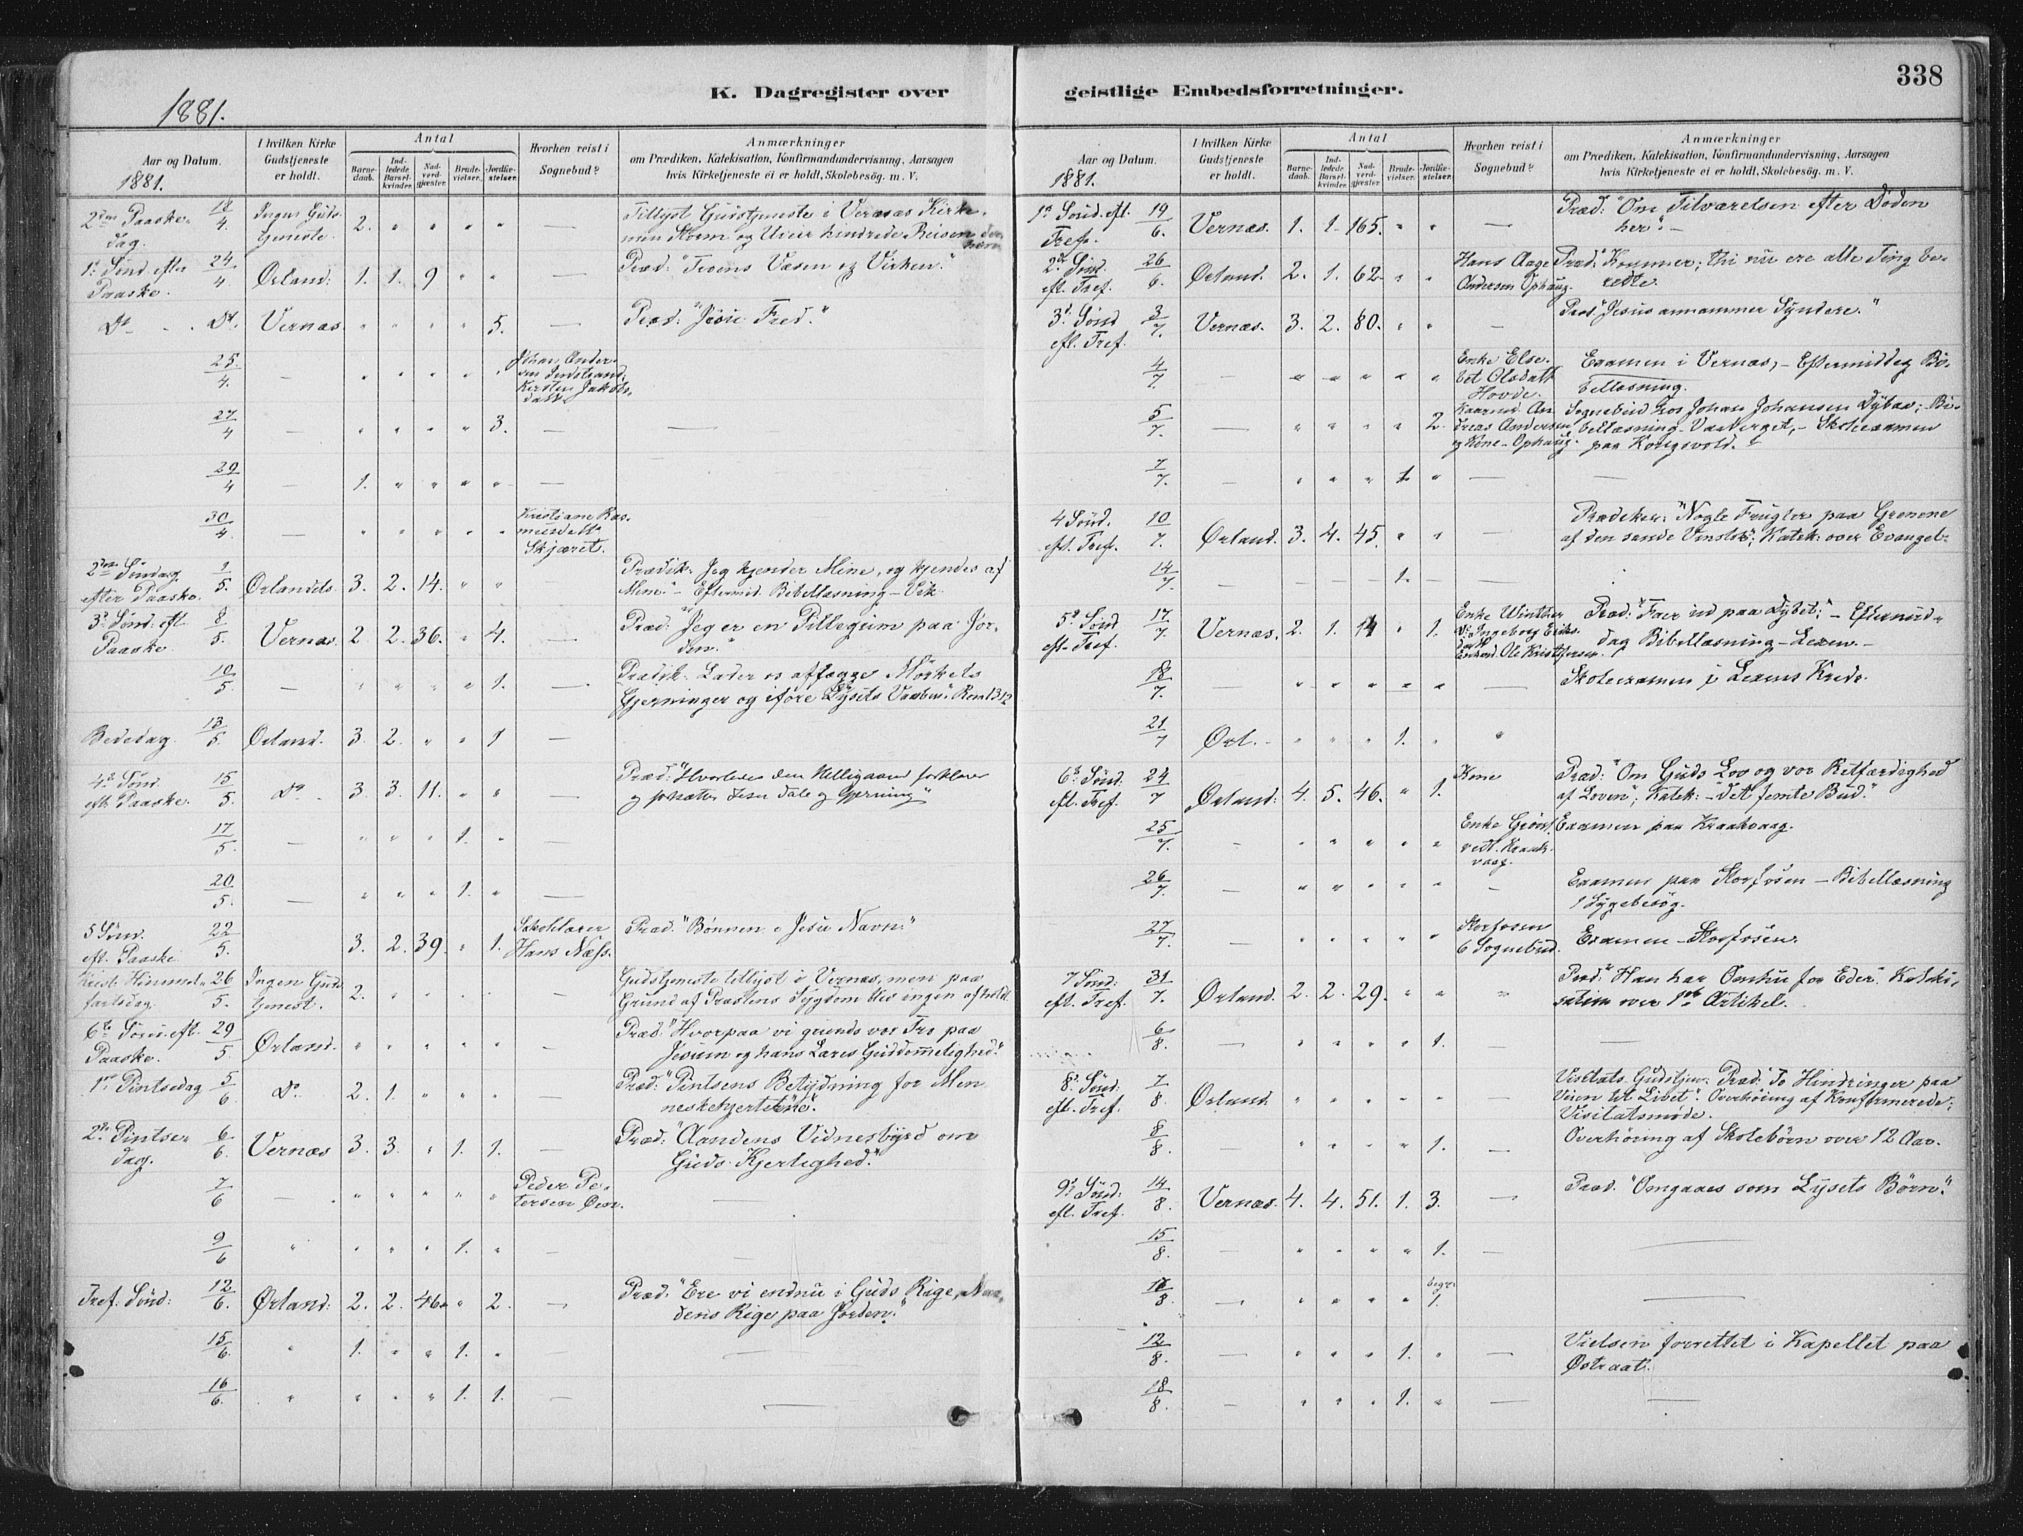 338
K. Dagregister over geistlige Embedsforretninger.
1881.
Aar og Datum.
1881.
I hvilken Kirke Gudstjeneste er holdt.
Antal
Barnedaab.
Indledede Barselkvinder.
Nadverdgjæster.
Brudevielser.
Jordfæstelser.
Hvorhen reist i Sognebud?
Anmærkninger
om Prædiken, Katekisation, Konfirmandundervisning, Aarsagen
hvis Kirketjeneste ei er holdt, Skolebesög. m. V.
2den Paaske- 18/4 Ingen Guds- 2. " " " " Tillyst Gudstjeneste i Vernæs Kirke,
dag. tjeneste. men Storm og Uveir hindrede Reisen
1ste Sönd. efter 24/4 Ørland. 1. 1. 9 " " Præd: "Troens Væsen og Virken."
Paaske.
Do Do. Vernæs. " " " " 5. — Præd: "Jesu Fred."
25/4. — " " " " " Johan Ander-
27/4 — " " " " 3. — —
29/4 — 1. " " " " —
30/4 — " " " " " Kristiane Ras-
musdatt.
Skjæret.
2den Söndag 1/5. Ørlandets 3. 2. 14. " " Prædik: Jeg kjender Mine, og kjendes af
efter Paaske. Mine." – Eftermid. Bibellæsning – Vik.
3die Sönd. eft. 8/5. Vernæs 2. 2. 36. " 4. — Præd: "Jeg er en Pillegrim paa Jor-
Paaske. den."
10/5. — " " " " 1. — Prædik: Lader os aflægge Mörkets
Gjerninger og iföre Lysets Vaaben. Rom 13.12
Bededag. 13/5. Ørland. 3. 2. " " 1 —
4de Sönd. 15/5. Do 3. 3. 11. " " Præd: "Hvorledes den Helligaand forklarer
eft. Paaske. og fortsætter Jesu Tale og Gjerning"
17/5. — " " " 1. " —
20/5. — " " " 1. " —
5 Sönd. 22/5. 3. 2. 39. " 1. Skolelærer Præd: "Bönnen i Jesu Navn."
eft. Paaske Hans Næss.
Krist. Himmel- 26/5. Ingen Guds- 2. " " " " — Gudstjeneste tillyst i Vernæs, men paa
fartsdag. tjenest. Grund af Præstens Sygdom blev ingen afholdt.
6te Sönd. eft. 29/5 Ørland. " " " " " — Præd: "Hvorpaa vi grunde vor Tro paa
Paaske. Jesum og hans Læres Guddommelighed."
1ste Pintsedag 5/6 Do. 2. 1. " " " — Præd: "Pintsens Betydning for Men-
neskehjerterne".
2den Pintse- 6/6. Vernæs 3. 3. " 1. 1. — Præd: "Aandens Vidnesbyrd om
dag. Guds Kjerlighed."
7/6 — " " " " " Peder Pe- —
tersen
9/6 " " " " 1. " — —
Tref. Sönd: 12/6. Ørland. 2. 2. 46. " 2. — Præd: "Ere vi endnu i Guds Rige, Naa-
dens Rige paa Jorden."
15/6. " 1. " " 1. " — —
16/6. " " " " 1. 1. — —
Aar og Datum.
1881.
I hvilken Kirke Gudstjeneste er holdt.
Antal
Barnedaab.
Indledede Barselkvinder.
Nadverdgjæster.
Brudevielser.
Jordfæstelser.
Hvorhen reist i Sognebud?
Anmærkninger
om Prædiken, Katekisation, Konfirmandundervisning, Aarsagen
hvis Kirketjeneste ei er holdt, Skolebesög. m. V.
1ste Sönd. eft. 19/6. Vernæs. 1. 1. 165. " " — Præd: "Om Tilværelsen efter Döden
Tref. her." –
2den Sönd. 26/6. Ørland. 2. 1. 62. " " Hans Aage Præd: "Kommer; thi nu ere alle Ting be-
eft. Tref. Andersen Ophaug. redte.
3die Sönd. 3/7. Vernæs. 3. 2. 80. " " — Præd: "Jesus annammer Syndere."
eft. Tref.
4/7. — " " " " " Enke Else- Examen i Vernæs, – Eftermiddag Bi-
bet Olsdatt. bellæsning.
Hovde.
5/7. — " " " " 2. Kaarmd. An- Sognebud hos Johan Johansen Dybad; Bi-
dreas Andersen bellæsning – – Skoleexamen
og Kone – Ophaug. paa Kongsvold.
7/7. — " " " 1. " — —
4 Sönd. 10/7. Ørland. 3. 4. 45. " " — Prædiken: "Nogle Frugter paa Grenene
eft. Tref. af den sande Vinstok"; Katek. over Evangel-
14/7 — — — — 1. — —
5te Sönd 17/7 Vernæs. 2. 1. 14 " 1. Enke Winther Præd: "Farer ud paa Dybet;" – Eftermid-
eft. Tref. Ingeborg Eriks- dag Bibellæsning – Lexen. –
datt.
Enkemd. Ole Kristofersen
18/7. — " " " " " — Skoleexamen i Lexens Kreds.
21/7 Ørl. — " " " 1. " "
6te Sönd. 24/7 Ørland. 4. 5. 46. " 1. Kone Præd: "Om Guds Lov og vor Retfærdighed
eft. Tref. af Loven"; Katek: – "det femte Bud."
25/7. — " " " " " Enke Examen paa Kraakvaag.
Kraak-
vaag.
26/7. — " " " " " — Examen paa Storfosen – Bibellæsning
1 Sygebesög.
27/7. — " " " " " Storfosen Examen – Storfosen.
6 Sognebud.
7 Sönd: 31/7. Ørland. 2. 2. 29. " " " Præd: "Han har Omhu for Eder". Kateki-
eft. Tref. sation over 1ste Artikel.
6/8. — " " " " 1. — —
8de Sönd: 7/8. Ørland. " " " " " Visitats Gudstjen: Præd: "To Hindringer paa
eft. Tref. Veien til Livet". Overhöring af Konfirmerede;
Visitatsmöde.
8/8. " " " " 1. — Overhöring af Skolebörn over 12 Aar.
9de Sönd: 14/8. Vernæs. 4. 4. 51. 1. 3. — Præd: "Omgaaes som Lysets Börn."
eft. Tref.
15/8. — " " " " 1. — —
/8. — " " " " begr. 1. — —
12/8. — " " " 1. " — Vielsen forrettet i Kapellet paa
Østraat.
18/8. — " " " 1. " — —